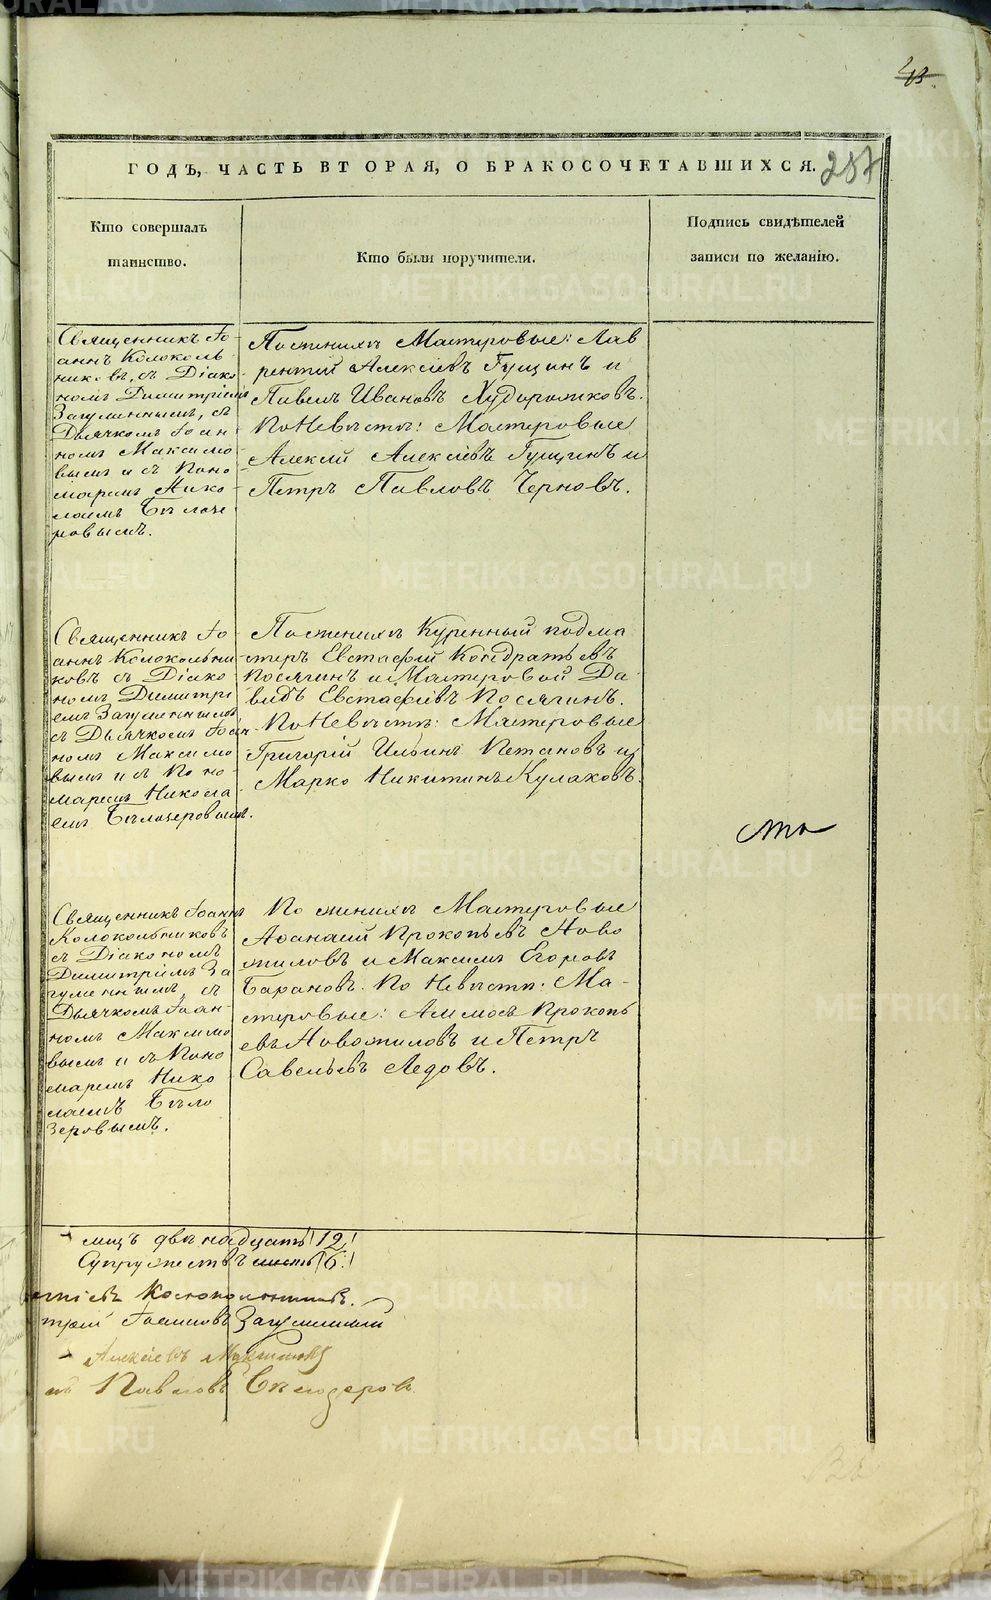 ГОДЪ, ЧАСТЬ ВТОРАЯ, О БРАКОСОЧЕТАВШИХСЯ.
287
Кто совершалъ
таинство.
Кто были поручители.
Подпись свидѣтелей
записи по желанію.
Священникъ Іо
аннъ Коло́коль
никовъ, съ Діако
номъ Димитріемъ
Загуменнымъ, съ
Дьячкомъ Іоан
номъ Максимо
вымъ и съ Поно
маремъ Нико
лаемъ Бѣлозе
ровымъ.
По женихѣ Мастеровые: Лав
рентій Алексѣевъ Гущинъ и
Павелъ Ивановъ Худорожковъ.
По Невѣстѣ: Мастеровые
Алексѣй Алексѣевъ Гущинъ и
Петръ Павловъ Черновъ.
Священникъ Іо
аннъ Колокольни
ковъ съ Діако
номъ Димитрі
емъ Загуменнымъ
съ Дьячкомъ Іоан
номъ Максимо
вымъ и съ Поно
маремъ Никола
емъ Бѣлозеровымъ.
По женихѣ Куренный подма
стеръ Евстафій Кондратьевъ
Посягинъ и Мастеровой Да
видъ Евстафіевъ Посягинъ.
По Невѣстѣ: Мастеровые
Григорій Ильинъ Петановъ и
Марко Никитинъ Кулаковъ.
Священникъ Іоаннъ
Колокольниковъ
съ Діакономъ
Димитріемъ За
гуменнымъ, съ
Дьячкомъ Іоан
номъ Максимо
вымъ и съ Поно
маремъ Нико
лаемъ Бѣло
зеровымъ.
По женихѣ Мастеровые
Афанасій Прокопьевъ Ново
жиловъ и Максимъ Егоровъ
Барановъ. По Невѣстѣ: Ма
стеровые: Аммосъ Прокопь
евъ Новожиловъ и Петръ
Савельевъ Ледовъ.
сто
мцъ двѣнадцать /12/
Супружествъ шесть /6/
Колокольниковъ.
трій Іоанновъ Загуменный
Алексѣевъ Максимовъ
Павловъ Бѣлозеровъ
METRIKI.GASO-URAL.RU